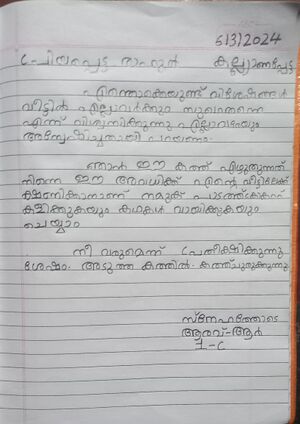 6/3/2024
പ്രിയപ്പെട്ട രാഹുൽ കല്ല്യാണപ്പേട്ട
എന്തൊക്കെയുണ്ട് വിശേഷങ്ങൾ
വീട്ടിൽ എല്ലാവർക്കും സുഖമെന്ന്
എന്ന് വിശ്വസിക്കുന്നു എല്ലാവരേയും
അന്വേഷിച്ചതായി പറയണം.
ഞാൻ ഈ കത്ത് എഴുതുന്നത്
നിന്നെ ഈ അവധിക്ക് എന്റെ വീട്ടിലേക്ക്
ക്ഷണിക്കാനാണ് നമുക്ക് പാടത്ത്
കളിക്കുകയും കഥകൾ വായിക്കുകയും
ചെയ്യാം
നീ വരുമെന്ന് പ്രതീക്ഷിക്കുന്നു
ശേഷം അടുത്ത കത്തിൽ. കത്ത്ചുരുക്കുന്നു
സ്നേഹത്തോടെ
ആരവ്-ആർ
1-C